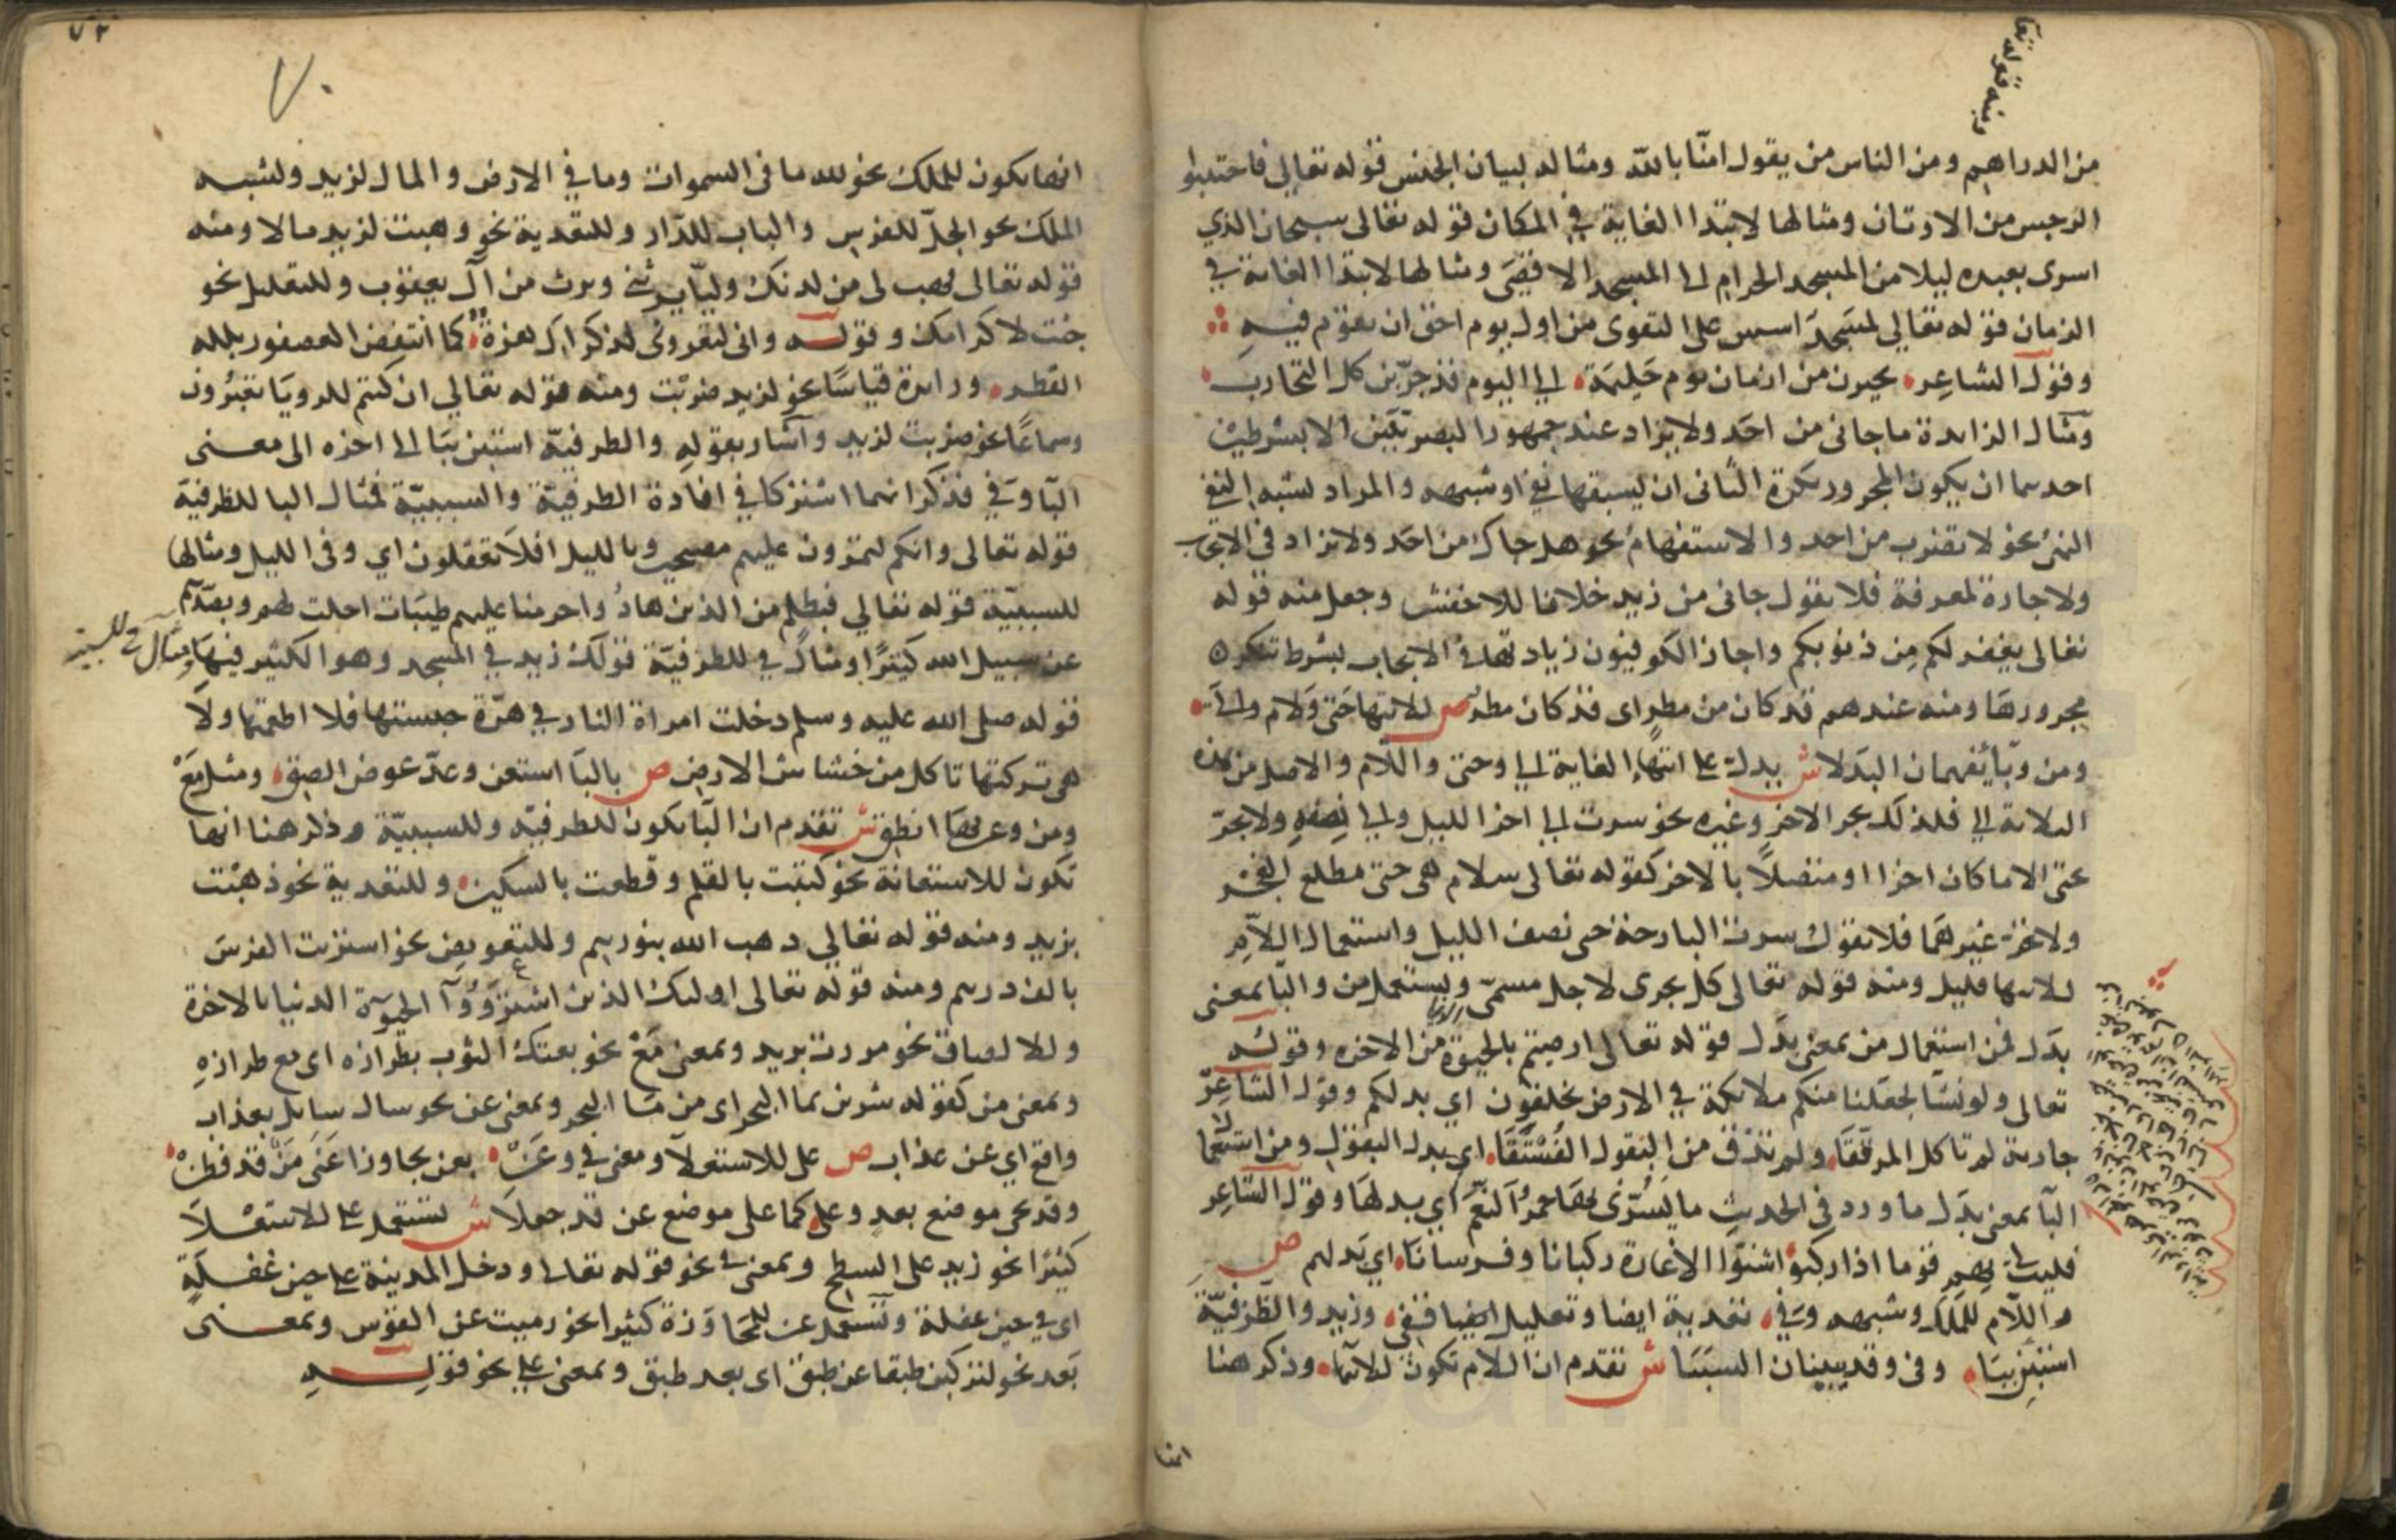 من الدراهم ومن الناس من يقول امنّا بالله ومثاله لبيان الجنس قوله تعالي فاجتنبوا
الرجس من الاوثان ومثالها لابتدا الغاية في المكان قوله تعالى سبحان الذي
اسرى بعبده ليلا من المسجد الحرام الى المسجد الاقصى ومثالها لابتدا الغاية في
الزمان قوله تعالي لمسجد اسس على التقوى من اول يوم احق ان تقوم فيه
وقول الشاعر تخيرن من ازمان يوم حليمة الي اليوم قد جربن كل التجارب
ومثال الزايدة ما جاني من احد ولا يزاد عند جمهور البصريين الا بشرطين
احدهما ان يكون المجرور نكرة الثاني ان يسبقها نفي او شبهه والمراد بشبه النفي
النهي نحو لا تضرب من احد والاستفهام نحو هل جاك من احد ولا تزاد في الايجاب
ولا جارة لمعرفة فلا تقول جاني من زيد خلافا للاخفش وجعل منه قوله
تعالى يغفر لكم من ذنوبكم واجاز الكوفيون زيادتها في الايجاب بشرط تنكير
مجرورها ومنه عندهم قد كان من مطر اى قد كان مطر ص للانتها حتى ولام والى
ومن وبا يفهمان البدلا ش يدل على انتهاء الغاية الي وحتى واللام والاصل من هذه
الثلاثة الي فلذلك تجر الاخر وغيره نحو سرت الي اخر الليل والي نصفه ولا تجر
حتى الا ما كان اخرا او متصلا بالاخر كقوله تعالى سلام هي حتى مطلع الفجر
ولا تجر غيرهما فلا تقول سرت البارحة حتى نصف الليل واستعمال اللام
للانتها قليل ومنه قوله تعالى كل يجرى لاجل مسمى ويستعمل من والبا بمعنى
بدل فمن استعمال من بمعنى بدل قوله تعالى ارضيتم بالحيوة الدنيا من الاخره وقوله
تعالى ولو نشا لجعلنا منكم ملائكة في الارض يخلفون اي بدلكم وقول الشاعر
جارية لم تاكل المرققا ولم تذق من البقول الفستقا اي بدل البقول ومن استعمال
البا بمعنى بدل ما ورد في الحديث ما يسرني بها حمر النعم اي بدلها وقول الشاعر
فليت لي بهم قوما اذا ركبوا شنوا الاغارة ركبانا وفرسانا اي بدلهم ص
واللام للملك وشبهه وفي تعدية ايضا وتعليل ايضا قفي وزيد والظرفية
استبن ببا وفي وقد يبينان السببا ش تقدم ان اللام تكون للانتها وذكر هنا
انها
٧٢
٧٠
انها تكون للملك نحو لله ما فى السموات وما في الارض والمال لزيد ولشبه
الملك نحو الجل للفرس والباب للدار وللتعدية نحو وهبت لزيد مالا ومنه
قوله تعالى فهب لى من لدنك وليا يرثني ويرث من آل يعقوب وللتعليل نحو
جئت لاكرامك وقوله واني لتعروني لذكراك هزة كما انتفض العصفور بلله
القطر وزايدة قياسا نحو لزيد ضربت ومنه قوله تعالي ان كنتم للرويا تعبرون
وسماعا نحو ضربت لزيد واشار بقوله والظرفية استبن ببا الى اخره الى معنى
البا وفي فذكر انهما اشتركا في افادة الظرفية والسببية فمثال البا للظرفية
قوله تعالى وانكم لتمرون عليهم مصبحين وبالليل افلا تعقلون اي وفي الليل ومثالها
للسببية قوله تعالي فبظلم من الذين هادوا حرمنا عليهم طيبات احلت لهم وبصدهم
عن سبيل الله كثيرا ومثال في للظرفية قولك زيد في المسجد وهو الكثير فيها ومثال في للسببية
قوله صلى الله عليه وسلم دخلت امراة النار في هرة حبستها فلا اطعمتها ولا
هي تركتها تاكل من خشاش الارض ص بالبا استعن وعد عوض الصق ومثل مع
ومن وعن بها انطق ش تقدم ان البا تكون للظرفيه وللسببية وذكر هنا انها
تكون للاستعانة نحو كتبت بالقلم وقطعت بالسكين وللتعدية نحو ذهبت
بزيد ومنه قوله تعالي ذهب الله بنورهم وللتعويض نحو اشتريت الفرس
بالف درهم ومنه قوله تعالى اولئك الذين اشتروا الحيوة الدنيا بالاخرة
وللالصاق نحو مررت بزيد وبمعنى مع نحو بعتك الثوب بطرازه اى مع طرازه
وبمعنى من كقوله شربن بما البحر اى من ما البحر وبمعنى عن نحو سال سايل بعذاب
واقع اي عن عذاب ص على للاستعلا ومعنى في وعن بعن تجاوزا عنى من قد فطن
وقد تجي موضع بعد وعلى كما على موضع عن قد جعلا ش تستعمل على للاستعلا
كثيرا نحو زيد على السطح وبمعنى في نحو قوله تعالى ودخل المدينة على حين غفلة
اى في حين غفلة وتستعمل عن للمجاوزة كثيرا نحو رميت عن القوس وبمعنى
بعد نحو لتركبن طبقا عن طبق اى بعد طبق وبمعنى على نحو قوله